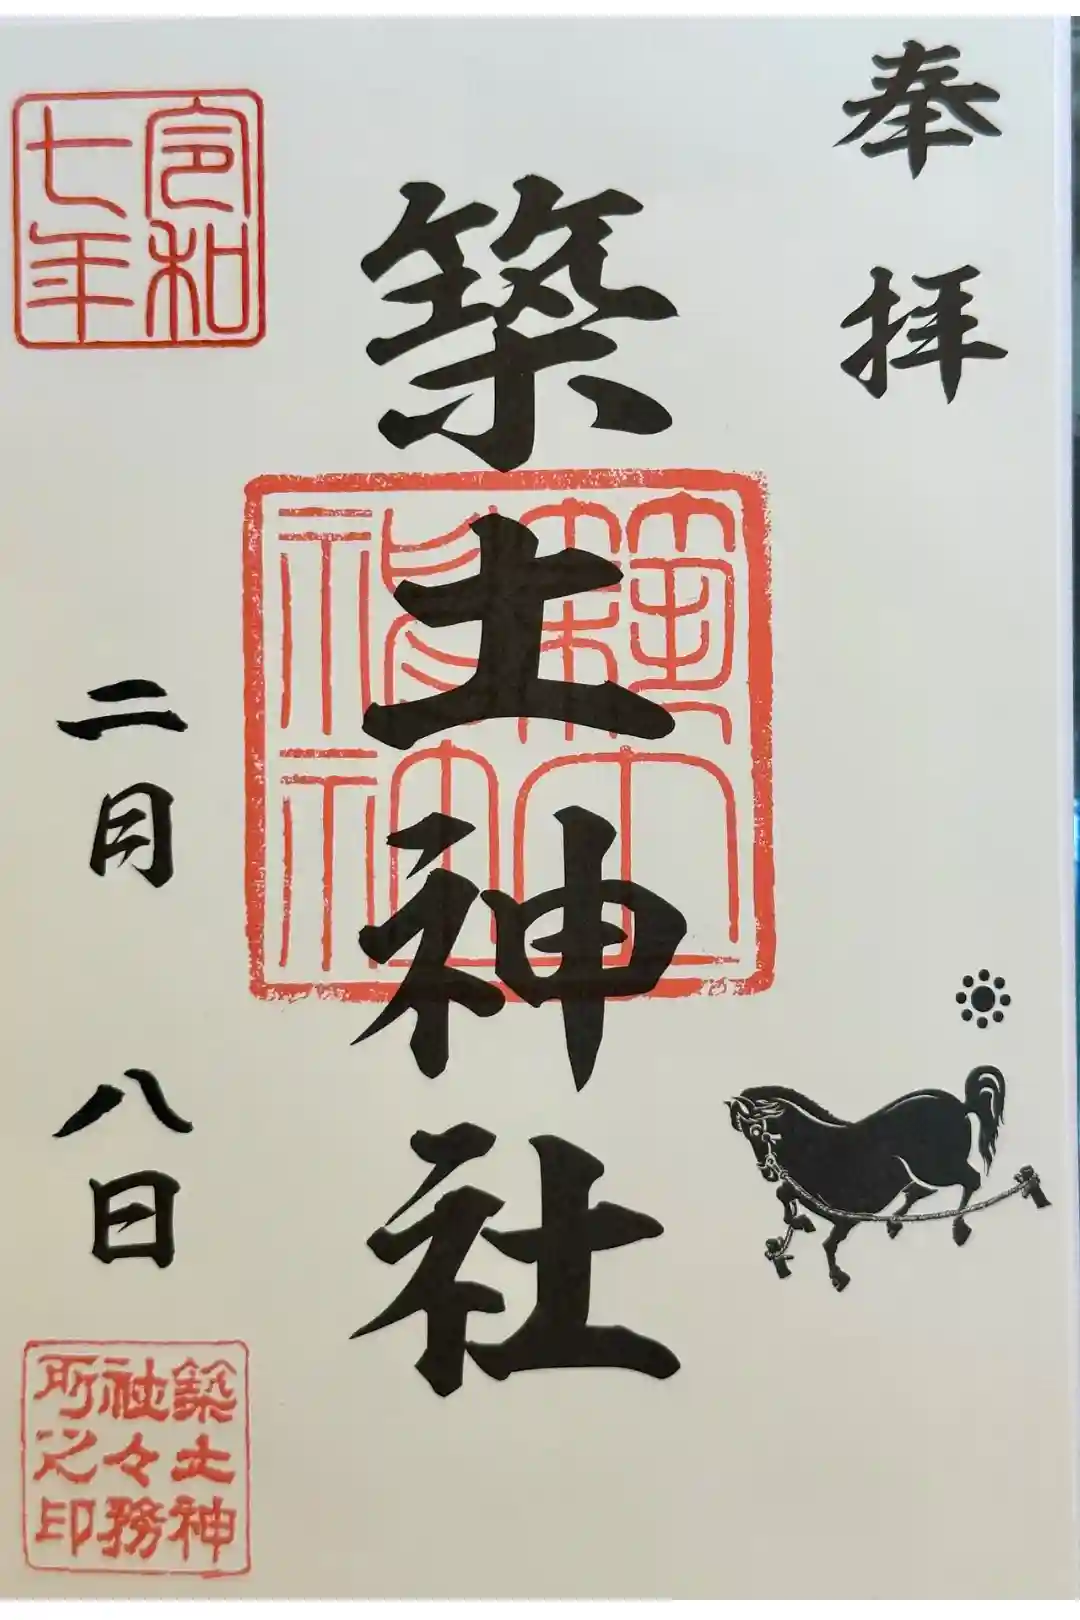 奉拝
築土神社
築土神社
令和七年
二月八日
築土神
社々務
所之印